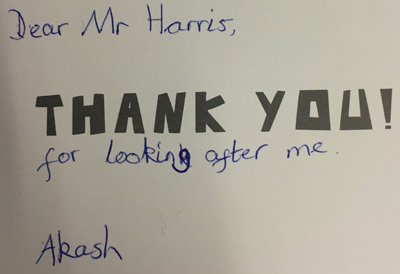 Dear Mr Harris,
THANK YOU!
for looking after me.
Akash